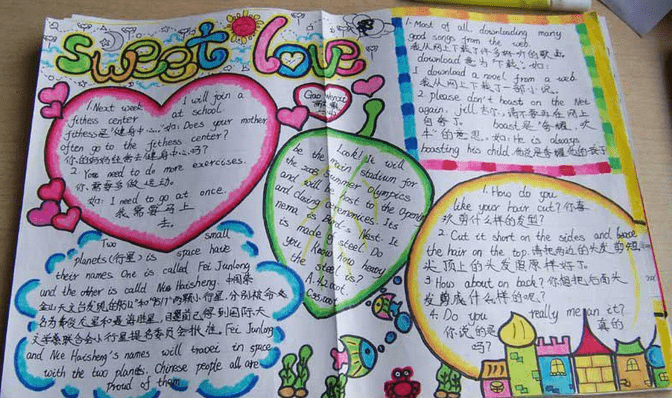 Sweet Love
1. Next week I will join a
fitness center at school
fithess是'健身中心.如: Does your mother
often go to the fitness center?
你的妈妈经常去健身中心吗?
2. You need to do more exercises.
你需要多做运动.
如: I need to go at once.
我需要马上
去.
Two small
planets(行星) in space have
their names One is called Fei Junlong
and the other is called Nie Haisheng.
Fei Junlong
and Nie Haisheng's names will travel in space
with the two planets. Chinese people all are
proud of them
Look! It will
be the main stadium for
the 2008 Summer Olympics
and will be host to the Opening
and closing ceremonies. Its
name is Bird's Nest. It
is made of steel. Do
you know how heavy
the steel is?
A. 42000t.
1. Most of all downloading many
good songs from the web.
我从网上下载了许多好听的歌曲
download 意为"下载".如:
I download a novel from a web.
我从网上下载了一部小说.
2. please don't boast on the Net
again, jill 请不要再在网上
自夸了. boast是"夸耀,吹
牛"的意思. 如: He is always
boasting his child. 他总是夸耀他的孩子
1. How do you
like your hair cut? 你喜
欢剪什么样的发型?
2. Cut it short on the sides and
the hair on the top. 请把两边的头发剪短,
头顶上的头发留原样好了.
3 How about on back? 你想把后面头
发剪成什么样的呢?
4. Do you really mean it?
你说的是 真的
吗?